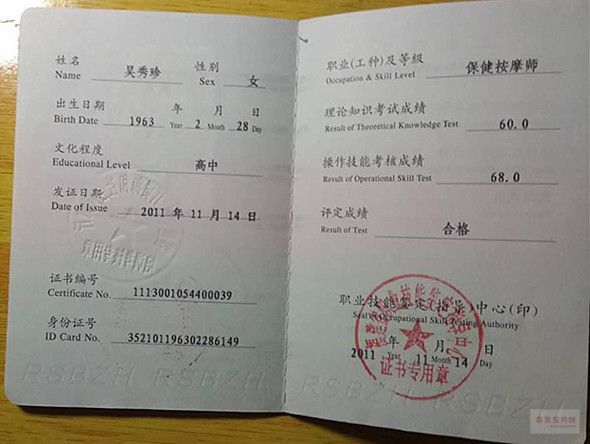 姓名 吴秀珍 性别 女
Name Sex
出生日期 1963 年 2 月 28 日
Birth Date Year Month Day
文化程度 高中
Educational Level
发证日期
Date of Issue 2011 年 11 月 14 日
证书编号
Certificate No. 1113001054400039
身份证号
ID Card No. 352101196302286149
RSBZH RSBZH
职业(工种)及等级 保健按摩师
Occupation & Skill Level
理论知识考试成绩
Result of Theoretical Knowledge Test 60.0
操作技能考核成绩
Result of Operational Skill Test 68.0
评定成绩 合格
Result of Test
职业技能鉴定(指导)中心(印)
Seal of Occupational Skill Testing Authority
2011 年 11 月 14 日
Year Month Day
证书专用章
RSBZH RSBZH